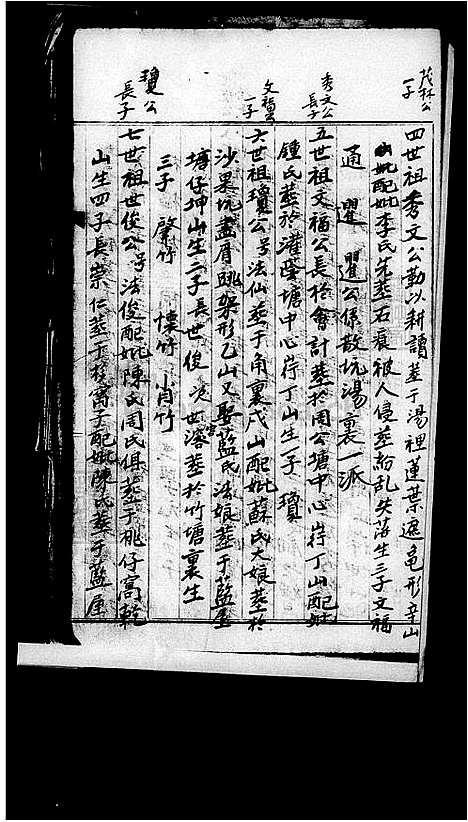 茂林公
一子
四世祖秀文公勤以耕讀葬于湯裡蓮葉遮龜形辛山
配妣李氏先葬石裏被人侵葬紛乱失落生三子文福
通 選 選公係散坑湯裏一派
秀文公
長子
五世祖文福公長於會計葬於周公塘中心岸丁山配妣
鍾氏葬於灌塋塘中心岸丁山生一子 瓊
文福公
一子
六世祖瓊公号法仙葬于角裏戌山配妣蘇氏大娘葬於
沙果坑盡屑跳架形乙山又娶藍氏法娘葬于藍屋
塘仔坤山生二子長世俊 次世濬葬於竹塘裏生
三子 肇竹 懐竹 肖竹
瓊公
長子
七世祖世俊公号法俊配妣陳氏周氏俱葬于桃仔窩乾
山生四子長崇仁葬于杉窩子配妣陳氏葬于藍屋